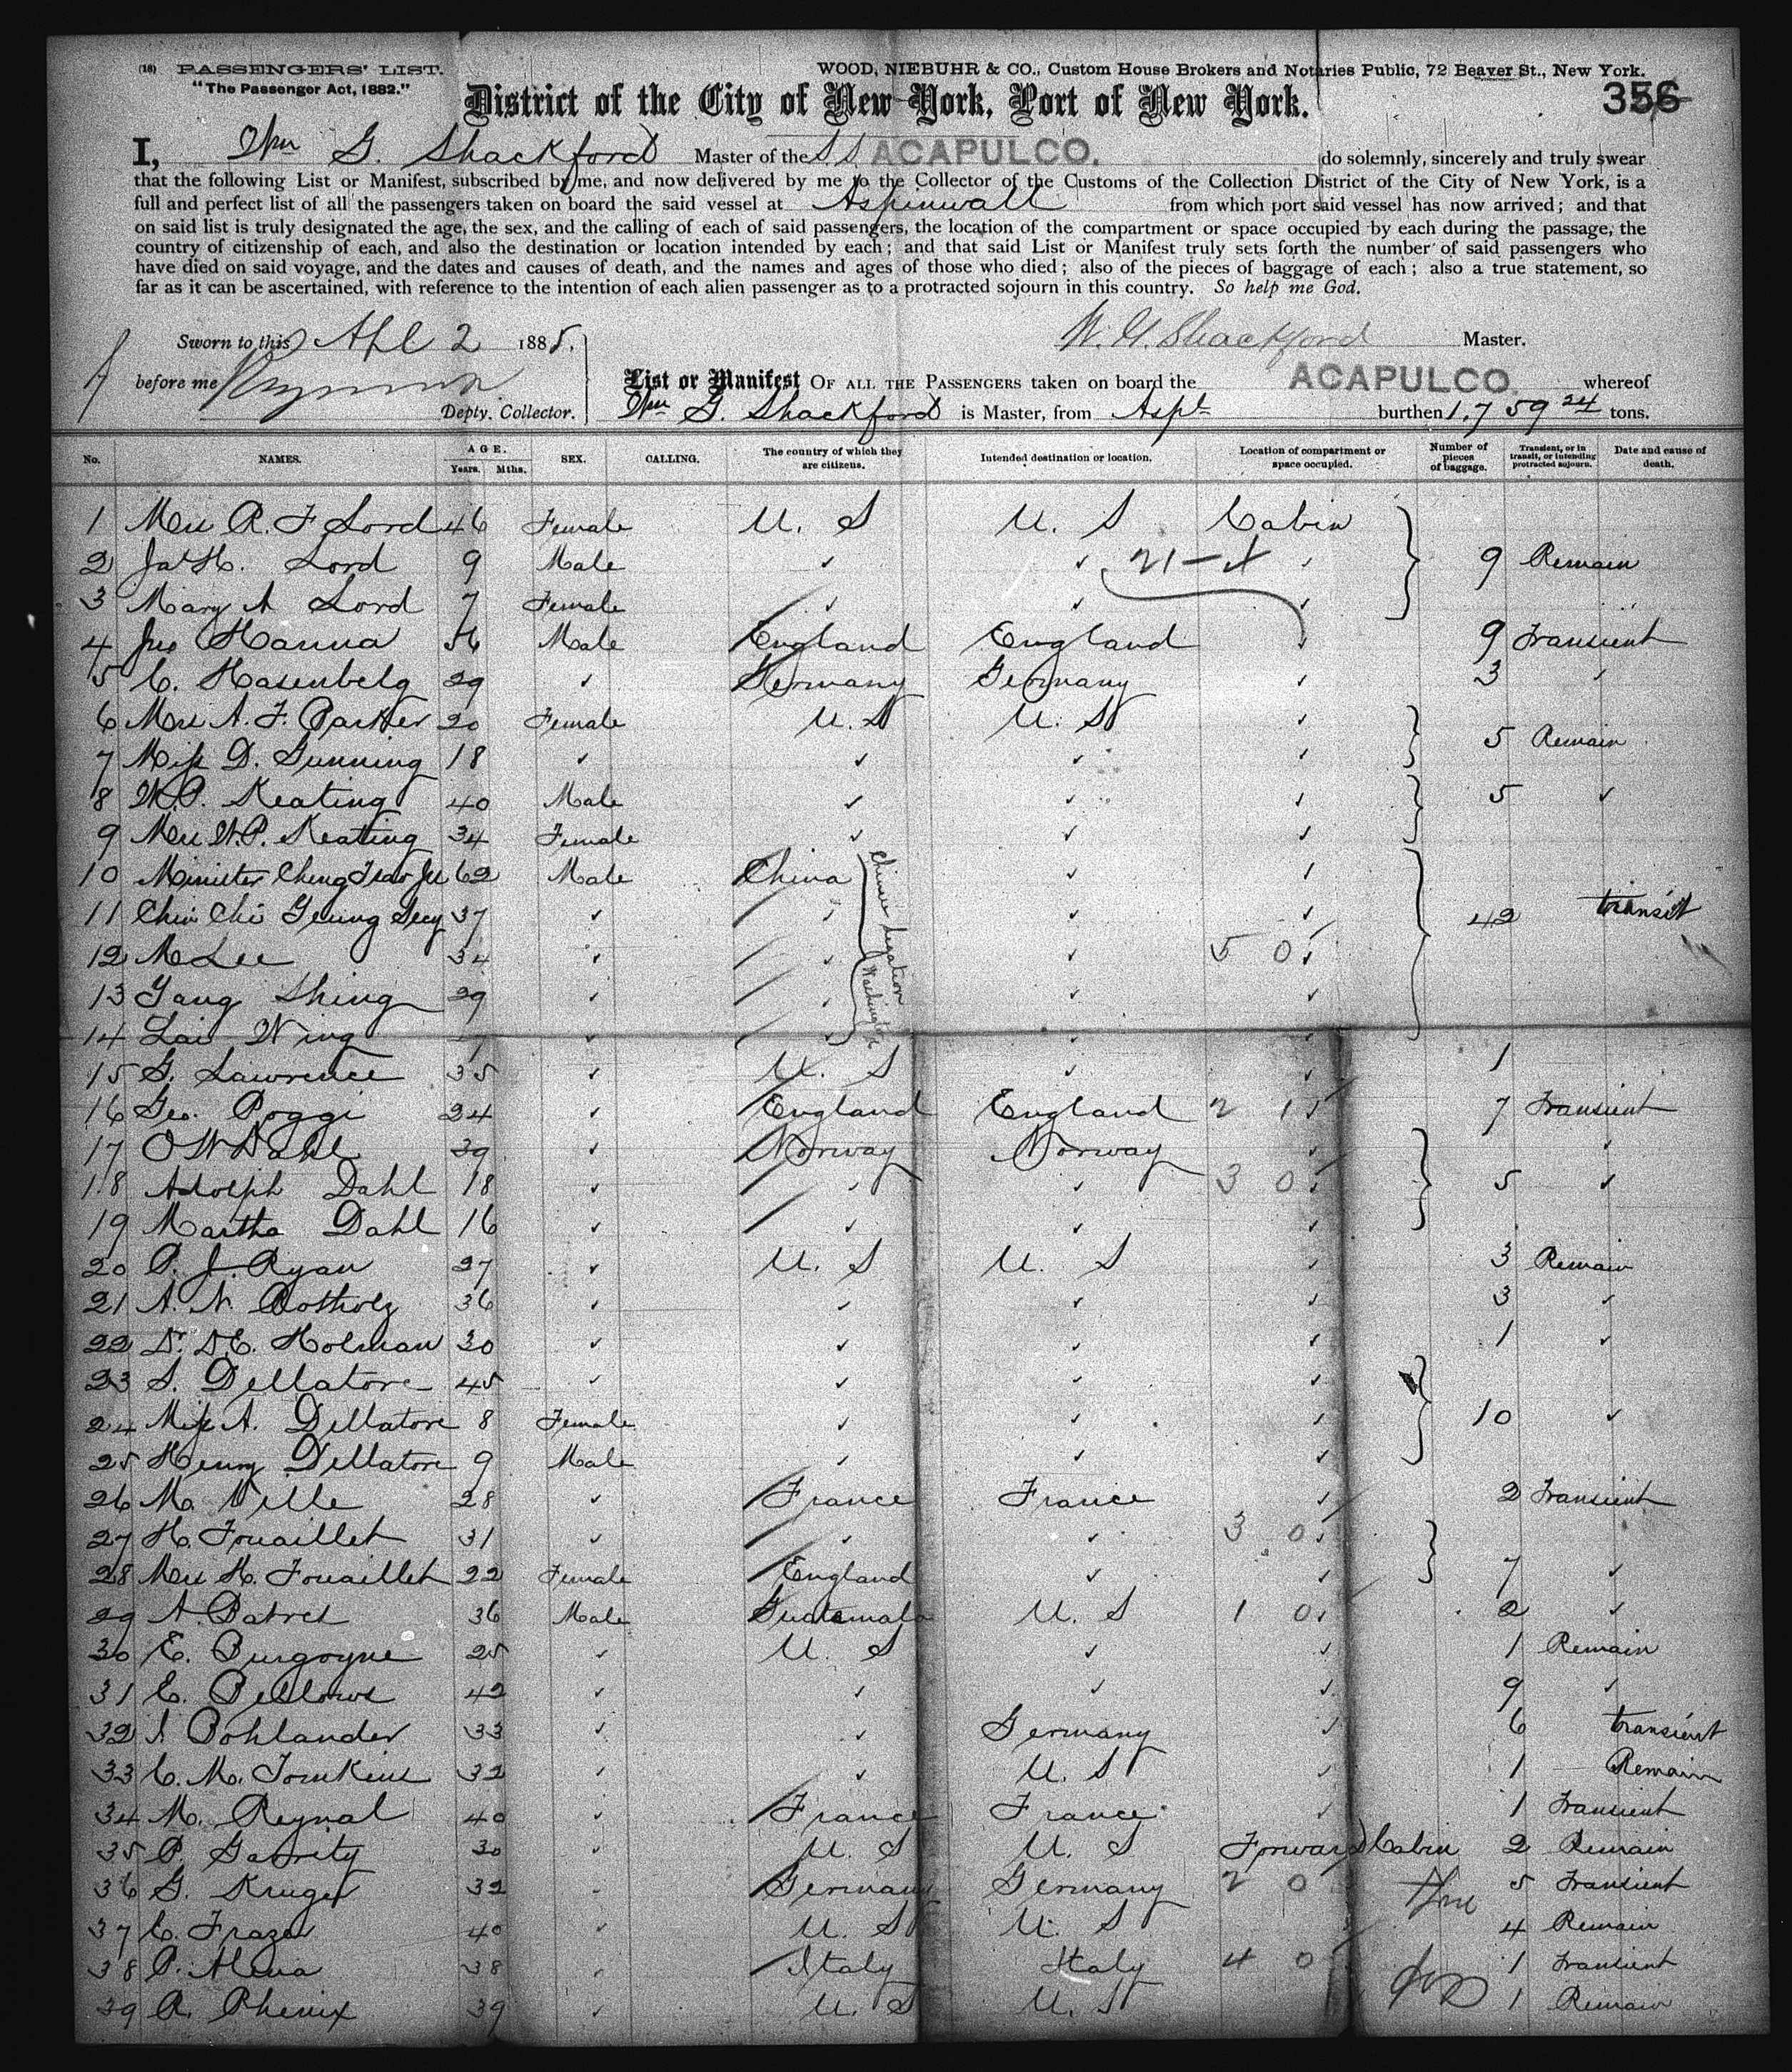 (16) PASSENGERS' LIST. WOOD, NIEBUHR & CO., Custom House Brokers and Notaries Public, 72 Beaver St., New York.
"The Passenger Act, 1882."
District of the City of New York, Port of New York. 356
I, Wm G. Shackford Master of the S.S. ACAPULCO. do solemnly, sincerely and truly swear
that the following List or Manifest, subscribed by me, and now delivered by me to the Collector of the Customs of the Collection District of the City of New York, is a
full and perfect list of all the passengers taken on board the said vessel at Aspinwall from which port said vessel has now arrived; and that
on said list is truly designated the age, the sex, and the calling of each of said passengers, the location of the compartment or space occupied by each during the passage, the
country of citizenship of each, and also the destination or location intended by each; and that said List or Manifest truly sets forth the number of said passengers who
have died on said voyage, and the dates and causes of death, and the names and ages of those who died; also of the pieces of baggage of each; also a true statement, so
far as it can be ascertained, with reference to the intention of each alien passenger as to a protracted sojourn in this country. So help me God.
Sworn to this Apl 2 1885. W. G. Shackford Master.
before me
Depty. Collector.
List or Manifest OF ALL THE PASSENGERS taken on board the ACAPULCO. whereof
Wm G. Shackford is Master, from Aspl burthen 1,759 24 tons.
No. NAMES. AGE. Years. Mths. SEX. CALLING. The country of which they are citizens. Intended destination or location. Location of compartment or space occupied. Number of pieces of baggage. Transient, or in transit, or intending protracted sojourn. Date and cause of death.
1 Mrs R. F Lord 46 Female U. S U. S Cabin
2 Jas H. Lord 9 Male ✓ ✓ 21-X ✓ 9 Remain
3 Mary A Lord 7 Female ✓ ✓ ✓
4 Jno Hanna 56 Male England England ✓ 9 Transient
5 C. Hasenbelg 29 ✓ Germany Germany ✓ 3 ✓
6 Mrs A. F. Parker 20 Female U. S U. S ✓
7 Miss D. Gunning 18 ✓ ✓ ✓ ✓ 5 Remain
8 W.P. Keating 40 Male ✓ ✓ ✓ 5 ✓
9 Mrs W.P. Keating 34 Female ✓ ✓ ✓
10 Minister Cheng Tsao Ju 62 Male China ✓ ✓
Chinese Legation Washington
11 Chin Chi Yeung Secy 37 ✓ ✓ ✓ ✓ 42 transit
12 M Lee 34 ✓ ✓ ✓ 5 0 ✓
13 Yang Shing 29 ✓ ✓ ✓ ✓
14 Lai Wing ✓ ✓ ✓ ✓
15 G. Lawrence 35 ✓ U. S ✓ ✓ 1
16 Geo. Poggi 24 ✓ England England 2 1 ✓ 7 Transient
17 O W Dahl 39 ✓ Norway Norway ✓
18 Adolph Dahl 18 ✓ ✓ ✓ 3 0 ✓ 5 ✓
19 Martha Dahl 16 ✓ ✓ ✓ ✓
20 P. J. Ryan 27 ✓ U. S U. S ✓ 3 Remain
21 A. N. Rotholz 36 ✓ ✓ ✓ ✓ 3 ✓
22 Dr. D.E. Holman 30 ✓ ✓ ✓ ✓ 1 ✓
23 S. Dellatore 45 ✓ ✓ ✓ ✓
24 Miss A. Dellatore 8 Female ✓ ✓ ✓ 10 ✓
25 Henry Dellatore 9 Male ✓ ✓ ✓
26 M. Ville 28 ✓ France France ✓ 2 Transient
27 H. Fouaillet 31 ✓ ✓ ✓ 3 0 ✓
28 Mrs H. Fouaillet 22 Female England ✓ ✓ 7 ✓
29 A 36 Male Guatemala U. S 1 0 ✓ 2 ✓
30 E. Burgoyne 25 ✓ U. S ✓ ✓ 1 Remain
31 E. Bellows 42 ✓ ✓ ✓ ✓ 9 ✓
32 Bohlander 33 ✓ ✓ Germany ✓ 6 transient
33 C. M. Tomkins 32 ✓ ✓ U. S ✓ 1 Remain
34 M. Reynal 40 ✓ France France ✓ 1 Transient
35 P. Garrity 30 ✓ U. S U. S Forward Cabin 2 Remain
36 G. Kruger 32 ✓ Germany Germany 2 0 5 Transient
37 C. Frazer 40 ✓ U. S U. S 4 Remain
38 P. 38 ✓ Italy Italy 4 0 1 Transient
39 R. Phenix 39 ✓ U. S U. S 1 Remain